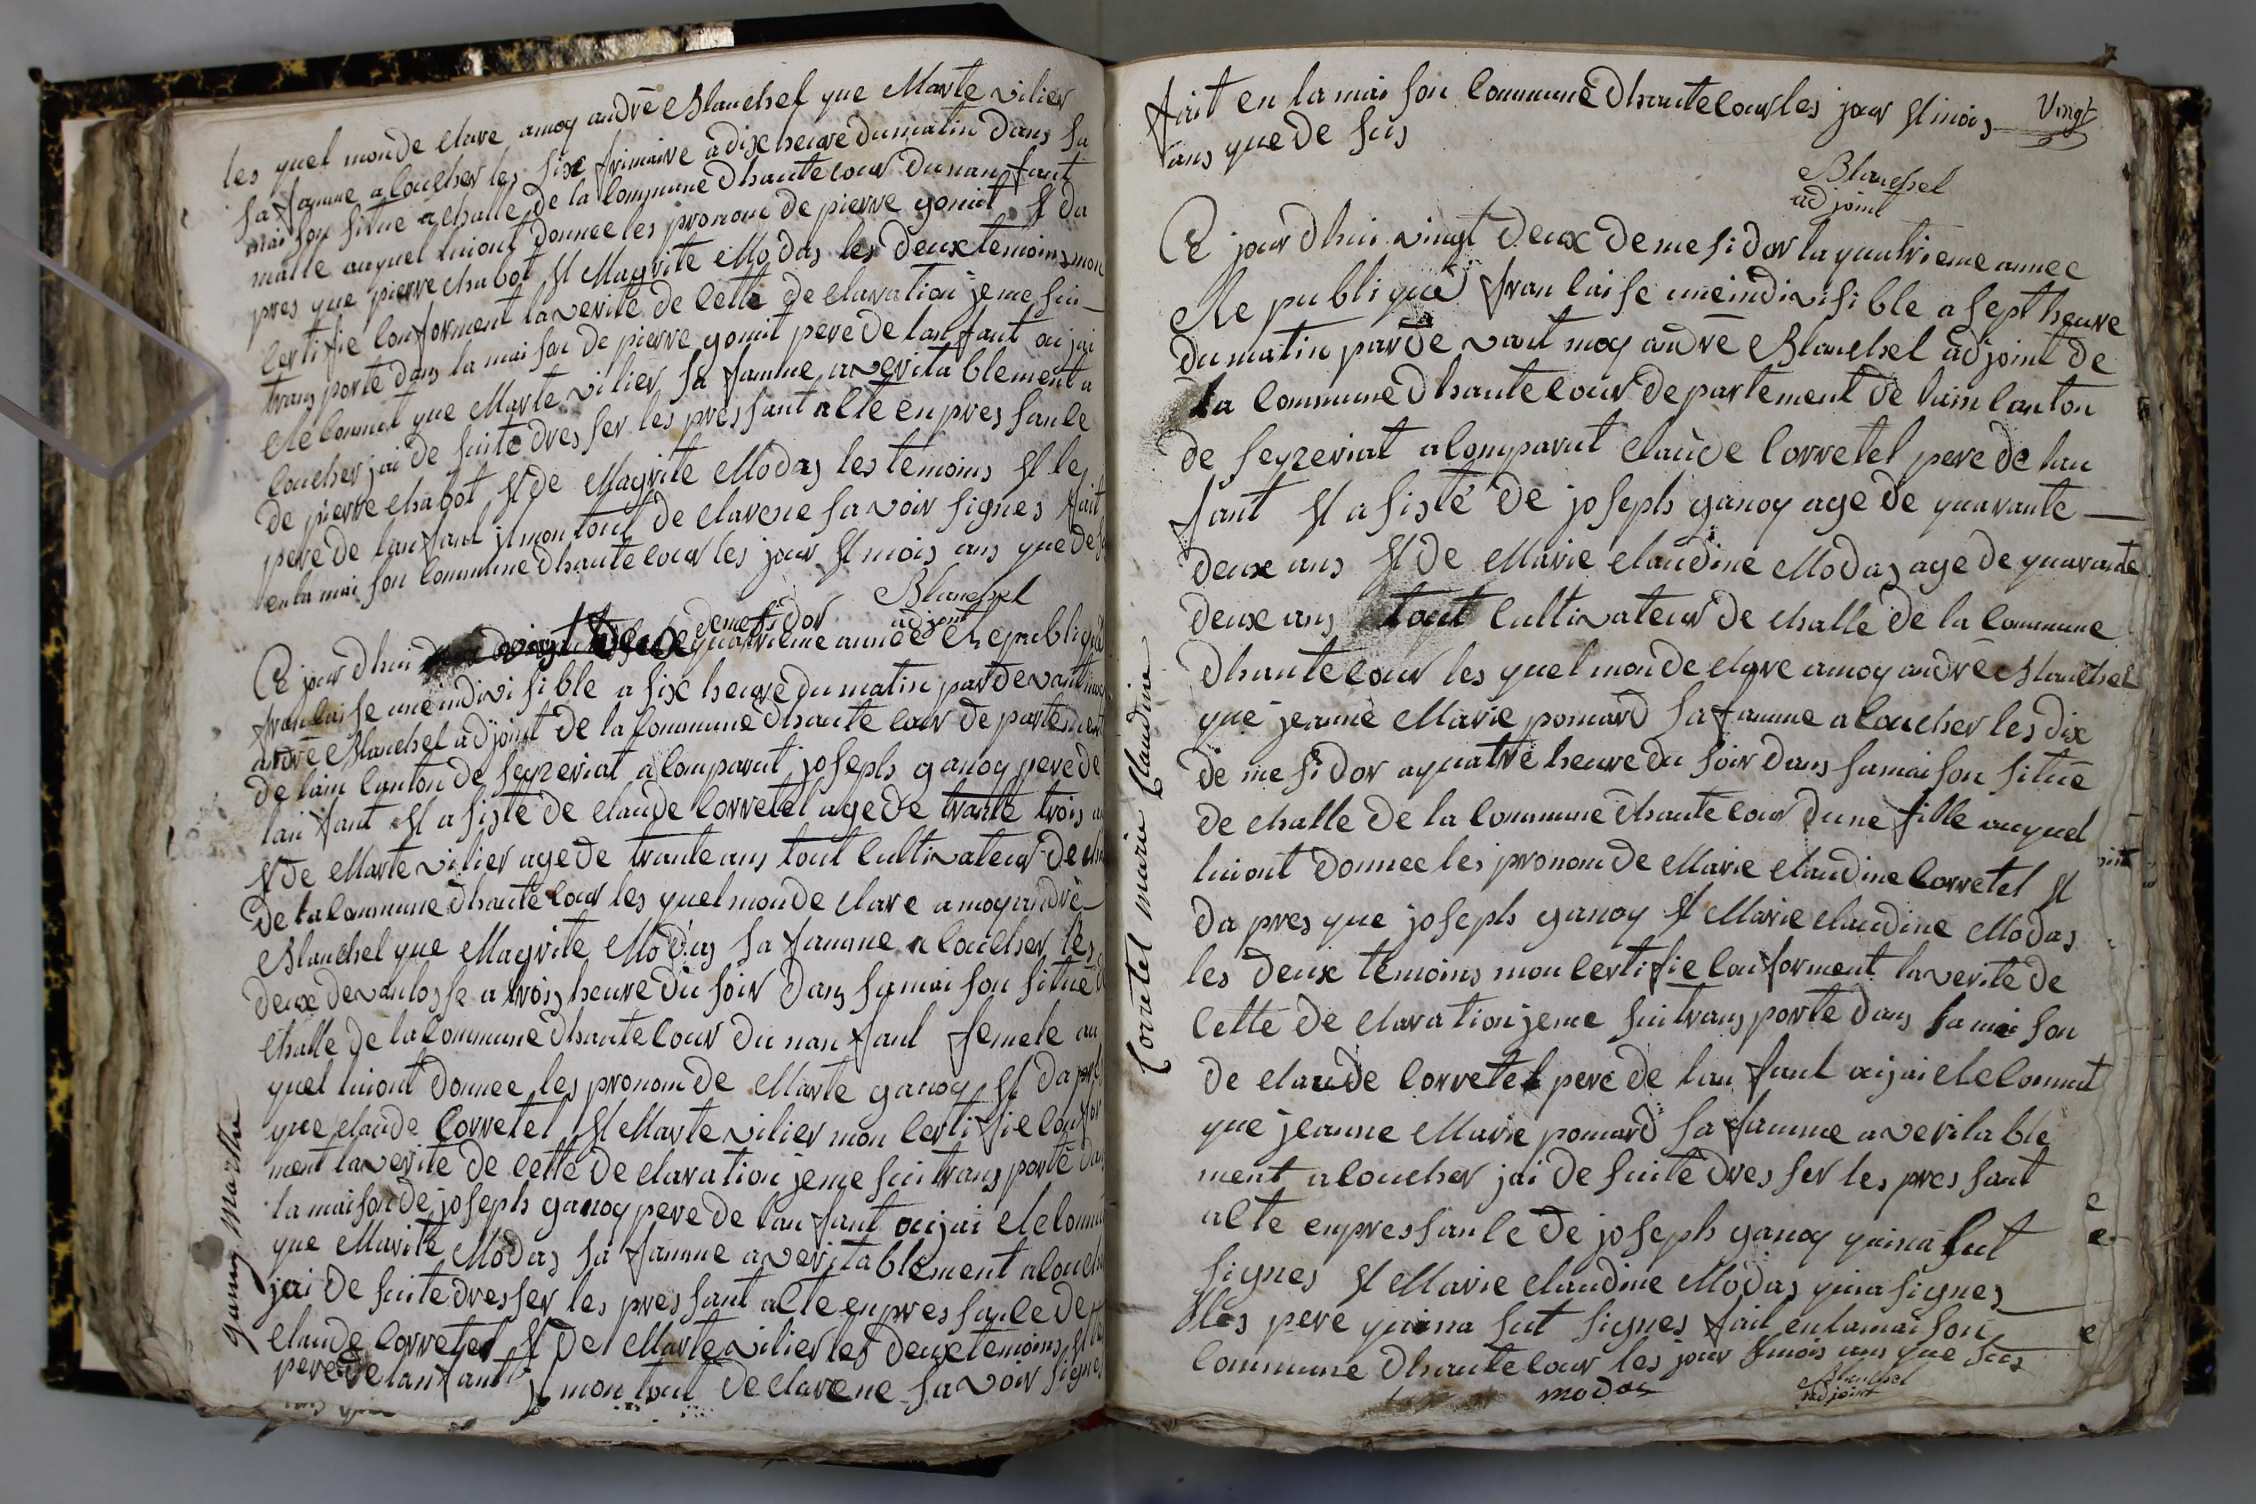 les quel mon de clare a moy andrē Blanchel que Marte vilier
sa famme a coucher les sixe frimaire a dixe heure du matin dans sa
mai son situe a challe de la commune dhautecour du nan fant
malle auquel lui ont donnee les pronom de pierre gonit et da
pres que pierre chabot et Magrite Modas les deux temoins mon
certi fie conforment la verite de cette de claration je me sui
trans porte dans la mai son de pierre gonit pere de lan fant ou jai
ele connut que Marte vilier sa famme a verita blement a
coucher jai de suite dres ser les pres sant alte en pres sanle
de pierre chabot et de Magrite Modas les temoins et le
pere de lan fant il mon tout de clare ne sa voir signes fait
en la mai son commune dhautecour les jour et mois ans que de
Blanchel
adjoint
Ce jour dhui vingt deux de mesidor quatrieme annee Republique
francaise une indivi sible a sixe heure du matin par de vant moy
andrē Blanchel adjoint de la commune dhaute cour de partement
de lain canton de seyzeriat a comparut joseph ganoy pere de
lan fant et a sistē de claude Corretel age de trante trois
et de Marte vilier age de trante ans tout cultivateur de
de la commune dhaute cour les quel mon de clare a moy andrē
Blanchel que Magrite Modas sa famme a coucher les
deux de vantosse a trois heure du soir dans sa mai son situe
challe de la commune dhaute cour du nan fant femele au
quel lui ont donnee les pronom de Marte ganoy et da pres
que claude Corretel et Marte vilier mon certi fie confor
ment la verite de cette de claration je me sui trans porte dans
la maison de joseph ganoy pere de lan fant ou jai ele connut
que Marite Modas sa famme a veritablement a couch
jai de suite dresser les pres sant alte en pres sanle de
claude Corretel et de Marte vilier les deux temoins et
pere de lan fant il mon tout de clare ne sa voir signes
ganoy Marthe
Vingt
fait en la mai son commune dhautecour les jour et mois
ans que de sus
Blanchel
adjoint
Ce jour dhui vingt deux de me si dor la quatrieme annee
Re publique fran caise une indivi sible a sept heure
du matin par de vant moy andrē Blanchel adjoint de
la commune dhautecour de partement de lain canton
de seyzeriat a comparut claude Corretel pere de lan
fant et a sistē de joseph ganoy age de quarante
deux ans et de Marie claudine Modas age de quarante
deux ans tout cultivateur de challe de la commune
dhaute cour les quel mon de clare a moy andrē Blanchel
que jeanne Marie pomard sa famme a coucher les dix
de me si dor a quatre heure du soir dans sa mai son situē
de challe de la commune dhaute cour dune fille auquel
lui ont donnee les pronom de Marie claudine Corretel et
da pres que joseph ganoy et Marie claudine Modas
les deux temoins mon certi fie conforment la verite de
cette de claration je me sui trans porte dans la mai son
de claude Corretel pere de lan fant ou jai ele connut
que jeanne Marie pomard sa famme a verita ble
ment a coucher jai de suite dres ser les pres sant
alte en pres sanle de joseph ganoy qui na sut
signes et Marie claudine Modas qui a signes
et les pere qui na sut signes fait en la mai son
commune dhaute cour les jour et mois ans que sus
modas
Blanchel
adjoint
Corretel marie Claudine